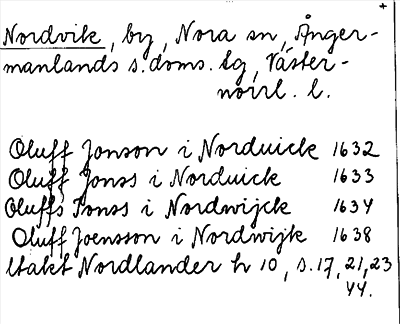 +
Nordvik, by, Nora sn, Ånger-
manlands s. doms. tg, Väster-
norrl. l.
Oluff Jonson i Norduick 1632
Oluff Jonss i Norduick 1633
Oluffs Jonss i Nordwijck 1634
Oluff Joensson i Nordwijk 1638
Utakt Nordlander h 10, s. 17, 21, 23
44.